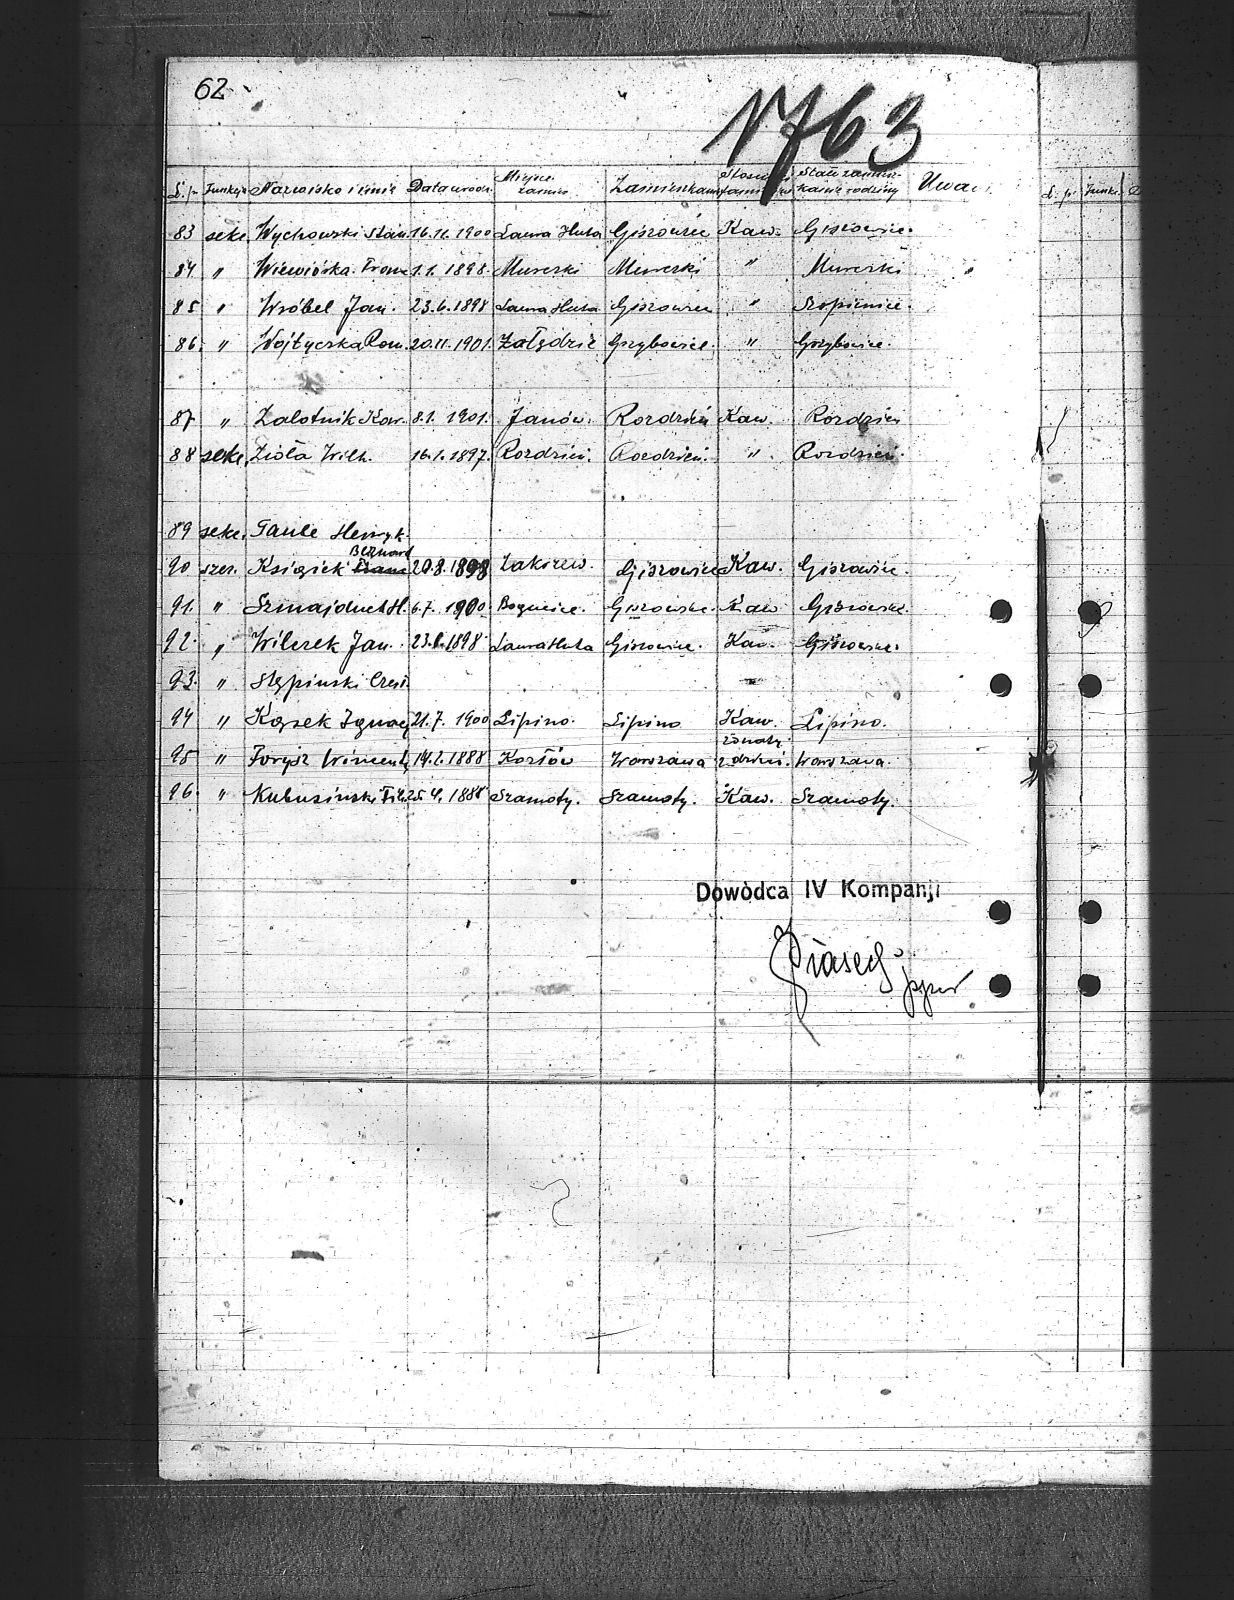 62
1763
L. p. Funkcja Nazwisko i imię Data urodz. Miejsce Zamieszkanie Stosunki Stałe zamiesz- Uwagi
kanie rodziny
83 sekc. Wychowski Stan. 16.11.1900 Laura Huta Giszowiec Kaw. Giszowiec.
84 " Wiewiórka Franc. 1.1.1898. Murcki Murcki " Murcki "
85 " Wróbel Jan. 23.6.1898 Laura Huta Giszowiec " Szopienice.
86. " Wojtyczka Rom. 20.11.1901. Załędzie Grzybowice. " Grzybowice.
87 " Zalotnik Kon. 8.1.1901. Janów. Rozdzień Kaw. Rozdzień
88 sekc. Zioła Wilh. 16.1.1897. Rozdzień. Rozdzień. " Rozdzień.
89 sekc. Taube Henryk.
Bernard
90 szer. Książek 20.8.1898 Zakrzew. Giszowiec Kaw. Giszowiec.
91. " Szmajduch H. 6.7.1900. Bogucice. Giszowiec Kaw Giszowiec.
92. " Wilczek Jan. 23.1898 Laura Huta Giszowiec. Kaw. Giszowiec.
93. " Stępinski Czesł.
94 " Kozek Ignacy 21.7.1900 Lipino. Lipino Kaw. Lipino.
żonaty
95 " Foryś Wincenty 14.2.1888 Kozłów Warszawa 2 dzieci. Warszawa.
96. " Kubusiński 25.4.1888 Szamoty. Szamoty. Kaw. Szamoty.
Dowódca IV Kompanji
Piasecki
L. p. Funkc.